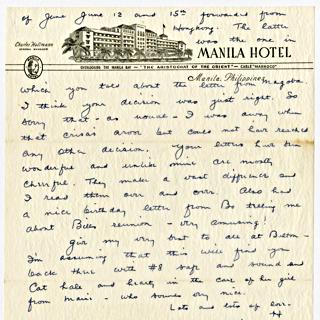 of June June 12 and 15th forwarded from
Hongkong. The latter
was the one in
Charles Hullmann
MANILA HOTEL
OVERLOOKING THE MANILA BAY - "THE ARISTOCRAT OF THE ORIENT" - CABLE "MANHOCO"
Manila, Philippines
which you told about the letter from
I think your decision was just right. So
sorry that - as usual - I was away when
that crisis arose but could not have reached
any other decision. your letters have been
wonderful and unlike mine are mostly
cheerful. They make a vast difference and
I read them over and over. Also had
a nice birthday letter from Bo telling me
about Bill's reunion - very amusing!
Give my very best to all at
I'm assuming that this will find you
back there with #8 safe and sound and
Cat hale and hearty in the care of his girl
from Maine - who sounds very nice.
Lots and lots of love.
H